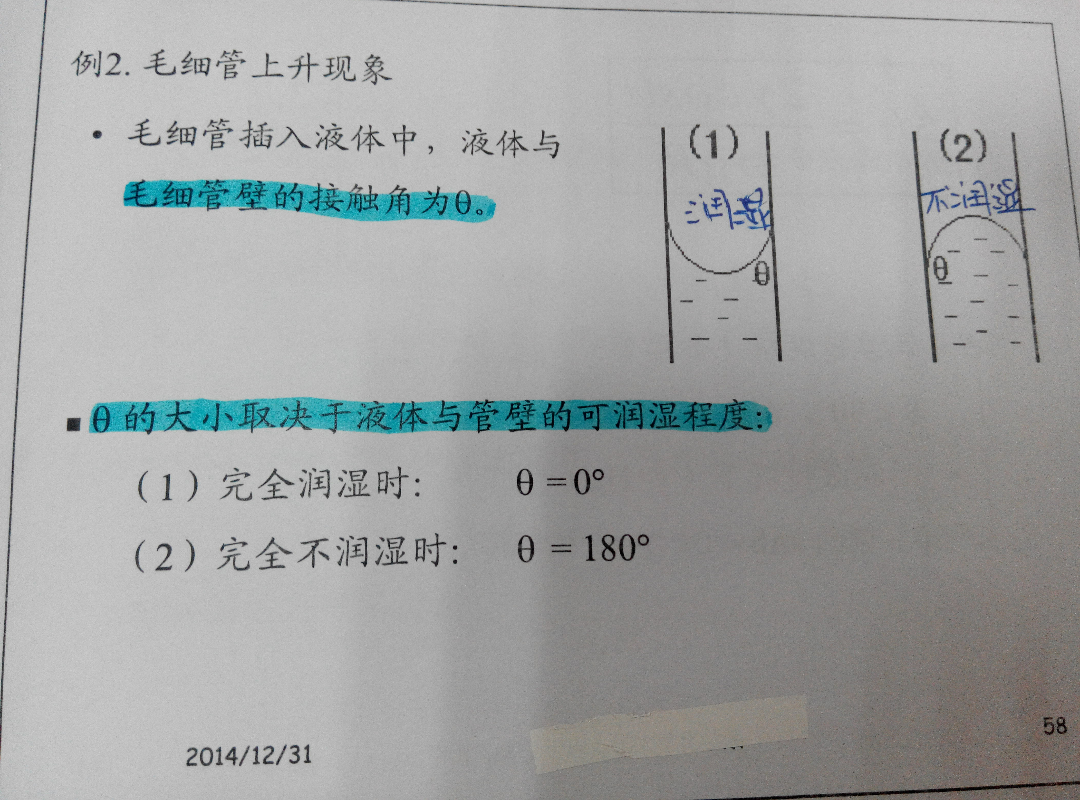 例2. 毛细管上升现象
• 毛细管插入液体中，液体与
毛细管壁的接触角为θ。
(1)
润湿
θ
(2)
不润湿
θ
■ θ 的大小取决于液体与管壁的可润湿程度:
（1）完全润湿时: θ =0°
（2）完全不润湿时: θ = 180°
2014/12/31
58